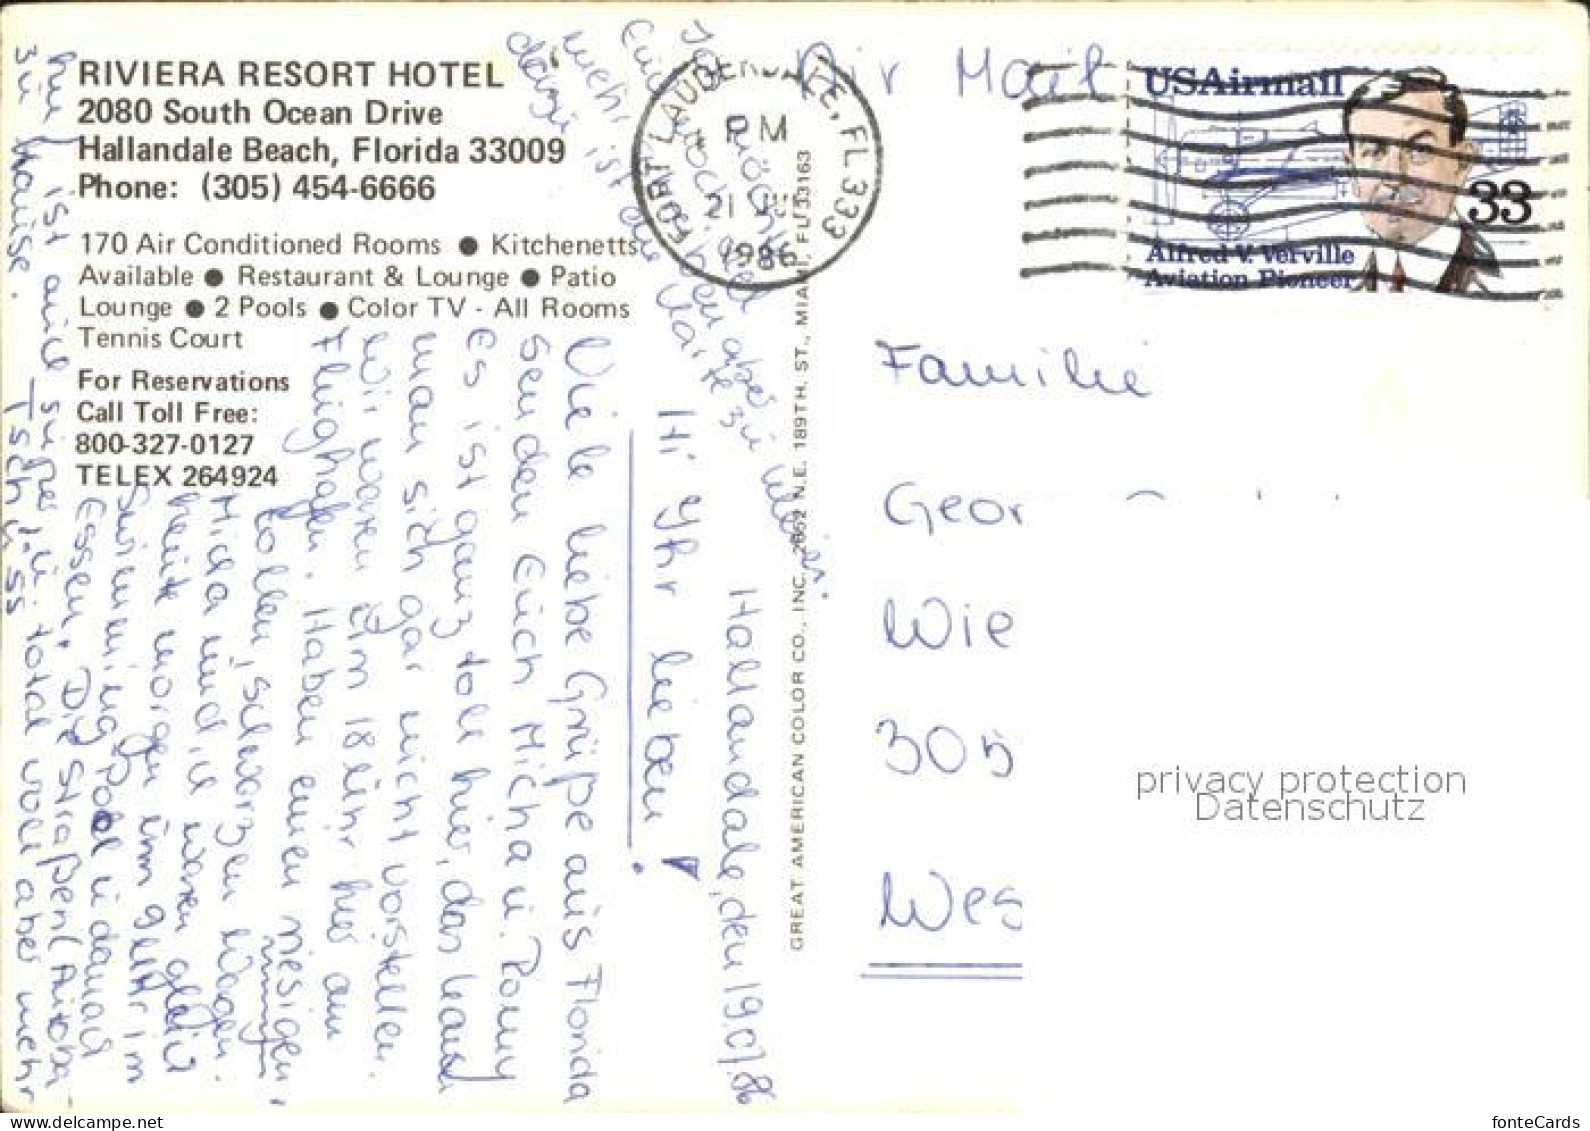 RIVIERA RESORT HOTEL
2080 South Ocean Drive
Hallandale Beach, Florida 33009
Phone: (305) 454-6666
170 Air Conditioned Rooms ● Kitchenetts
Available ● Restaurant & Lounge ● Patio
Lounge ● 2 Pools ● Color TV - All Rooms
Tennis Court
For Reservations
Call Toll Free:
800-327-0127
TELEX 264924
Hallandale, den 19.07.86
Hi Ihr lieben!
Viele liebe Grüße aus Florida
senden Euch Micha u. Romy
Es ist ganz toll hier, das kann
man sich gar nicht vorstellen.
Wir waren um 18 Uhr hier am
Flughafen. Haben einen riesigen,
tollen, schwarzen Wagen.
Micha und ich waren gleich
heute morgen um 9 Uhr im
Swimming Pool u. danach
Essen. Die Straßen (Autoba
hn) ist auch super u. total voll aber mehr
zu Hause. Tschüss
Ich möchte
Euch noch
mehr schreiben aber
dazu ist die Karte zu
GREAT AMERICAN COLOR CO., INC. 2062 N.E. 189TH. ST., MIAMI, FL 33163
FORT LAUDERDALE, FL 333
PM
21
1986
Air Mail
USAirmail
33
Alfred V. Verville
Aviation Pioneer
Familie
Geor
Wie
305
Wes
privacy protection
Datenschutz
www.delcampe.net
fonteCards